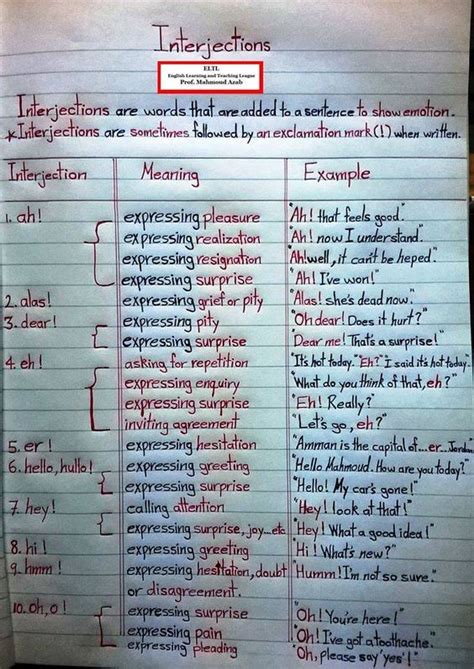 Interjections
ELTL
English Learning and Teaching League
Prof. Mahmoud Azab
Interjections are words that are added to a sentence to show emotion.
*Interjections are sometimes followed by an exclamation mark(!) when written.
Interjection Meaning Example
1. ah! expressing pleasure "Ah! that feels good."
expressing realization "Ah! now I understand."
expressing resignation "Ah! well, it can't be heped."
expressing surprise "Ah! I've won!"
2. alas! expressing grief or pity "Alas! she's dead now."
3. dear! expressing pity "Oh dear! Does it hurt?"
expressing surprise "Dear me! That's a surprise!"
4. eh! asking for repetition "It's hot today." "Eh?" I said it's hot today.
expressing enquiry "What do you think of that, eh?"
expressing surprise "Eh! Really?"
inviting agreement "Let's go, eh?"
5. er! expressing hesitation "Amman is the capital of...er...Jordan."
6. hello, hullo! expressing greeting "Hello Mahmoud. How are you today?"
expressing surprise "Hello! My car's gone!"
7. hey! calling attention "Hey! look at that!"
expressing surprise, joy...etc "Hey! What a good idea!"
8. hi! expressing greeting "Hi! What's new?"
9. hmm! expressing hesitation, doubt "Humm! I'm not so sure."
or disagreement.
10. oh, o! expressing surprise "Oh! You're here!"
expressing pain "Oh! I've got a toothache."
expressing pleading "Oh, please say 'yes'!"